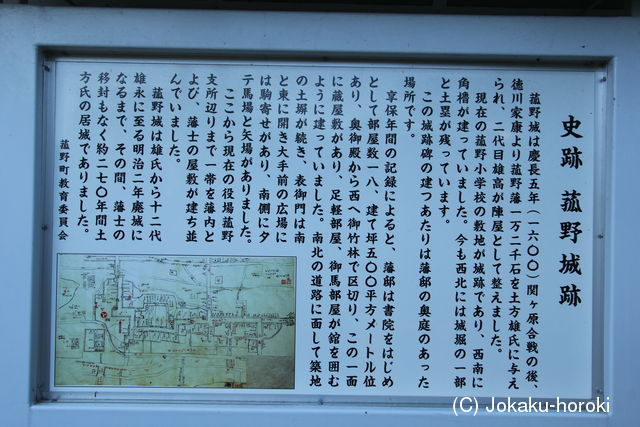 史跡 菰野城跡
菰野城は慶長五年（一六〇〇）関ヶ原合戦の後、
徳川家康より菰野藩一万二千石を土方雄氏に与え
られ、二代目雄高が陣屋として整えました。
現在の菰野小学校の敷地が城跡であり、西南に
角櫓が建っていました。今も西北には城堀の一部
と土塁が残っています。
この城跡碑の建つあたりは藩邸の奥庭のあった
場所です。
享保年間の記録によると、藩邸は書院をはじめ
として部屋数一八、建て坪五〇〇平方メートル位
あり、奥御殿から西へ御竹林で区切り、この一画
に蔵屋敷があり、足軽部屋、御馬部屋が館を囲む
ように建っていました。南北の道路に面して築地
の土塀が続き、表御門は南
と東に開き大手前の広場に
は駒寄せがあり、南側に夕
テ馬場と矢場がありました。
ここから現在の役場菰野
支所辺りまで一帯を藩内と
よび、藩士の屋敷が建ち並
んでいました。
菰野城は雄氏から十二代
雄永に至る明治二年廃城に
なるまで、その間、藩士の
移封もなく約二七〇年間土
方氏の居城でありました。
菰野町教育委員会
(C) Jokaku-horoki